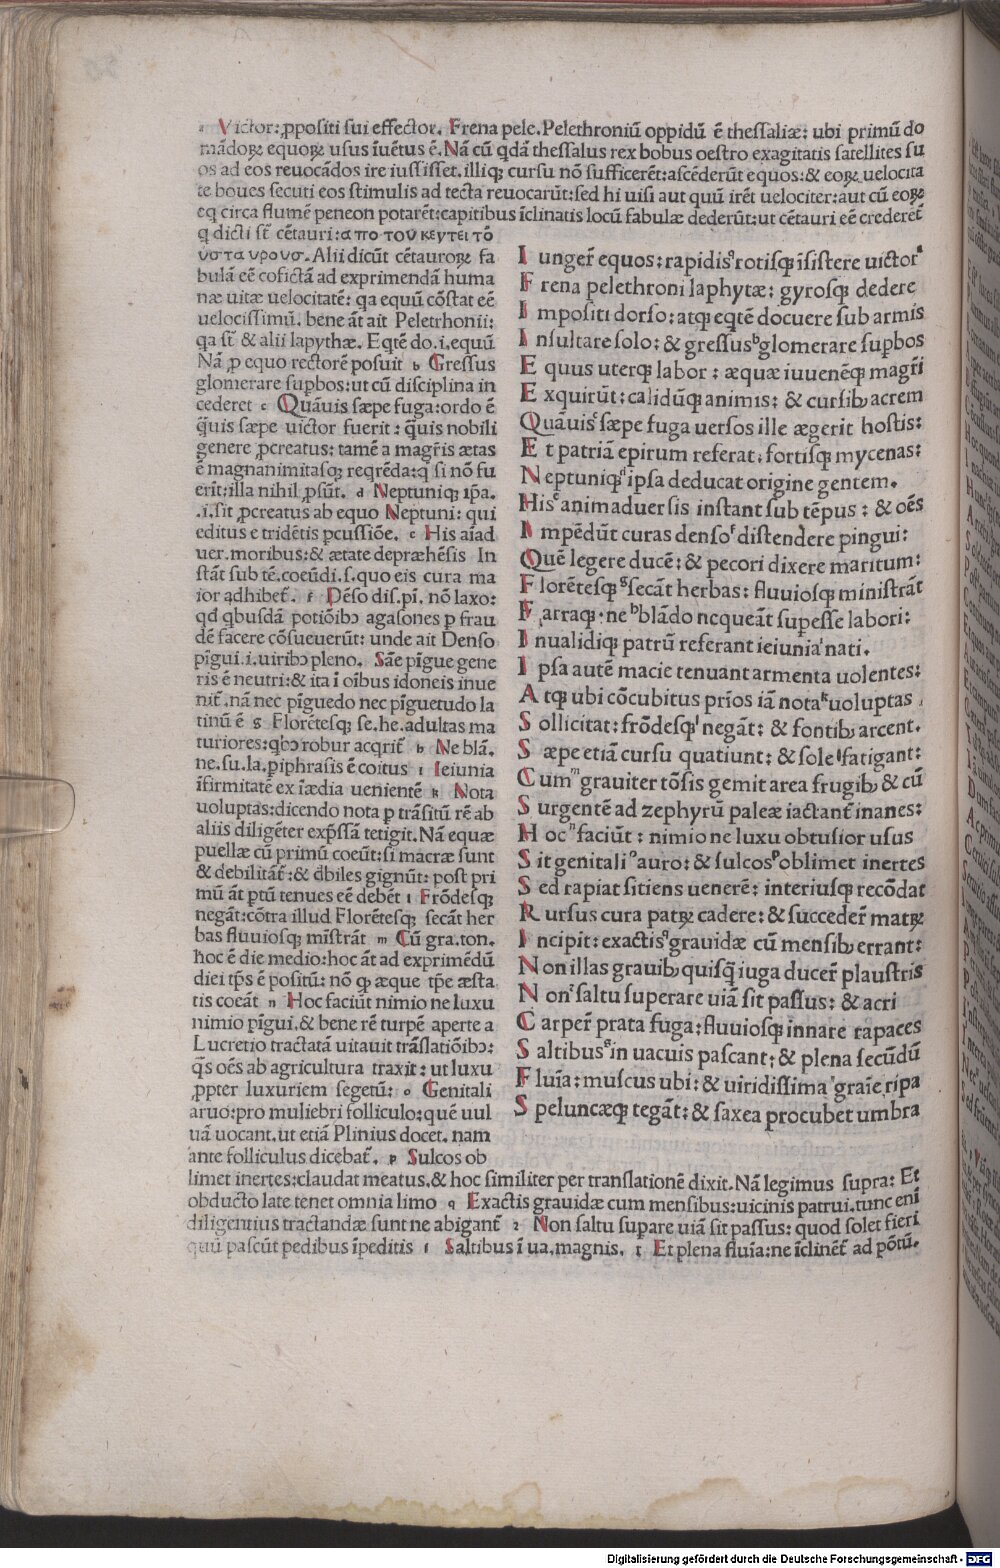 a Victor: ꝓpositi sui effector. Frena pele. Pelethroniū oppidū ē thessaliæ: ubi primū do
mādoꝝ equoꝝ usus īuētus ē. Nā cū qdā thessalus rex bobus oestro exagitatis satellites su
os ad eos reuocādos ire iussisset. illiqꝫ cursu nō sufficerēt: ascēderūt equos: & eoꝝ uelocita
te boues secuti eos stimulis ad tecta reuocarūt: sed hi uisi aut quū irēt uelociter: aut cū eoꝝ
eq circa flumē peneon potarēt: capitibus īclinatis locū fabulæ dederūt: ut cētauri eē crederēt̄
q dicti st̄ cētauri: απο του κεντει τō
υστα υρουσ. Alii dicūt cētauroꝝ fa
bulā eē cofictā ad exprimendā huma
næ uitæ uelocitatē: qa equū cōstat eē
uelocissimū. bene āt ait Peletrhonii:
qa st̄ & alii lapythæ. Eqtē do. i. equū
Nā ꝓ equo rectorē posuit b Gressus
glomerare supbos: ut cū disciplina in
cederet c Quāuis sæpe fuga: ordo ē
q̄uis sæpe uictor fuerit: q̄uis nobili
genere ꝓcreatus: tamē a magr̄is ætas
ē magnanimitasqꝫ reqrēda: q si nō fu
erīt: illa nihil ꝓsūt. d Neptuniqꝫ ip̄a.
.i. sit ꝓcreatus ab equo Neptuni: qui
editus e tridētis pcussiōe. e His aīad
uer. moribus: & ætate depræhēsis In
stāt sub tē. coeūdi. s. quo eis cura ma
ior adhibet̄. f Dēso dis. pī. nō laxo:
qd̄ qbusdā potiōibꝰ agasones p frau
dē facere cōsueuerūt: unde ait Denso
pīgui. i. uiribꝰ pleno. Sāe pīgue gene
ris ē neutri: & ita ī oībus idoneis inue
nit̄. nā nec pīguedo nec pīguetudo la
tinū ē g Florētesqꝫ se. he. adultas ma
turiores: qbꝰ robur acqrit̄ h Ne blā.
ne. su. la. piphrasis ē coitus i Ieiunia
īfirmitatē ex īædia uenientē k Nota
uoluptas: dicendo nota p trāsitū rē ab
aliis diligēter exp̄ssā tetigit. Nā equæ
puellæ cū primū coeūt: si macræ sunt
& debilitāt̄: & d̄biles gignūt: post pri
mū āt ptū tenues eē debēt l Frōdesqꝫ
negāt: cōtra illud Florētesqꝫ secāt her
bas fluuiosqꝫ mīstrāt m Cū gra. ton.
hoc ē die medio: hoc āt ad exprimēdū
diei tp̄s ē positū: nō qꝫ æque tp̄e æsta
tis coeāt n Hoc faciūt nimio ne luxu
nimio pīgui. & bene rē turpē aperte a
Lucretio tractatā uitauit trāslatiōibꝰ:
q̄s oēs ab agricultura traxit: ut luxu
ꝓpter luxuriem segetū: o Genitali
aruo: pro muliebri folliculo: quē uul
uā uocant. ut etiā Plinius docet. nam
ante folliculus dicebat̄. p Sulcos ob
limet inertes: claudat meatus. & hoc similiter per translationē dixit. Nā legimus supra: Et
obducto late tenet omnia limo q Exactis grauidæ cum mensibus: uicinis patrui. tunc enī
diligentius tractandæ sunt ne abigant̄ r Non saltu supare uiā sit passus: quod solet fieri
quū pascūt pedibus īpeditis s Saltibus ī ua. magnis. t Et plena fluīa: ne īclinēt̄ ad pōtū.
I unger̄ equos: rapidisqꝫ rotisqꝫ īsistere uictorᵃ
F rena pelethroni laphytæ: gyrosqꝫ dedere
I mpositi dorso: atqꝫ eqtē docuere sub armis
I nsultare solo: & gressusᵇ glomerare supbos
E quus uterqꝫ labor: æquæ iuuenēqꝫ magr̄i
E xquirūt: calidūqꝫ animis: & cursibꝫ acrem
Quāuisᶜ sæpe fuga uersos ille ægerit hostis:
E t patriā epirum referat, fortisqꝫ mycenas:
N eptuniqꝫᵈ ipsa deducat origine gentem.
Hisᵉ animaduersis instant sub tēpus: & oēs
I mpēdūt curas densoᶠ distendere pingui:
Quē legere ducē: & pecori dixere maritum:
F lorētesqꝫᵍ secāt herbas: fluuiosqꝫ ministrāt
F arraqꝫ. neʰ blādo nequeāt supesse labori:
I nualidiqꝫ patrū referant ieiuniaⁱ nati.
I psa autē macie tenuant armenta uolentes:
A tqꝫ ubi cōcubitus prīos iā notaᵏ uoluptas,
S ollicitat: frōdesqꝫˡ negāt: & fontibꝫ arcent.
S æpe etiā cursu quatiunt: & sole fatigant:
Cumᵐ grauiter tōsis gemit area frugibꝫ & cū
S urgentē ad zephyrū paleæ iactant̄ inanes:
H ocⁿ faciūt: nimio ne luxu obtusior usus
S it genitaliᵒ auro: & sulcosᵖ oblimet inertes
S ed rapiat sitiens uenerē: interiusqꝫ recōdat
R ursus cura patꝝ cadere: & succeder̄ matꝝ
I ncipit: exactisq grauidæ cū mensibꝫ errant:
N on illas grauibꝫ quisq̄ iuga ducer̄ plaustris
N onʳ saltu superare uiā sit passus: & acri
C arper̄ prata fuga: fluuiosqꝫ innare rapaces
S altibusˢ in uacuis pascant: & plena secūdū
F luīa: muscus ubi: & uiridissima graīe ripa
S peluncæqꝫ tegāt: & saxea procubet umbra
Digitalisierung gefördert durch die Deutsche Forschungsgemeinschaft - DFG